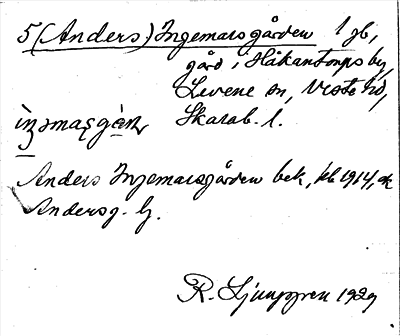 5 (Anders) Ingemarsgården 1 gb,
gård i Håkantorps by,
Levene sn, Viste hd,
ìŋəmaşgàɳ Skarab. l.
Anders Ingemarsgården bek, jb 1914, ok
Andersg. lj.
R. Ljunggren 1929